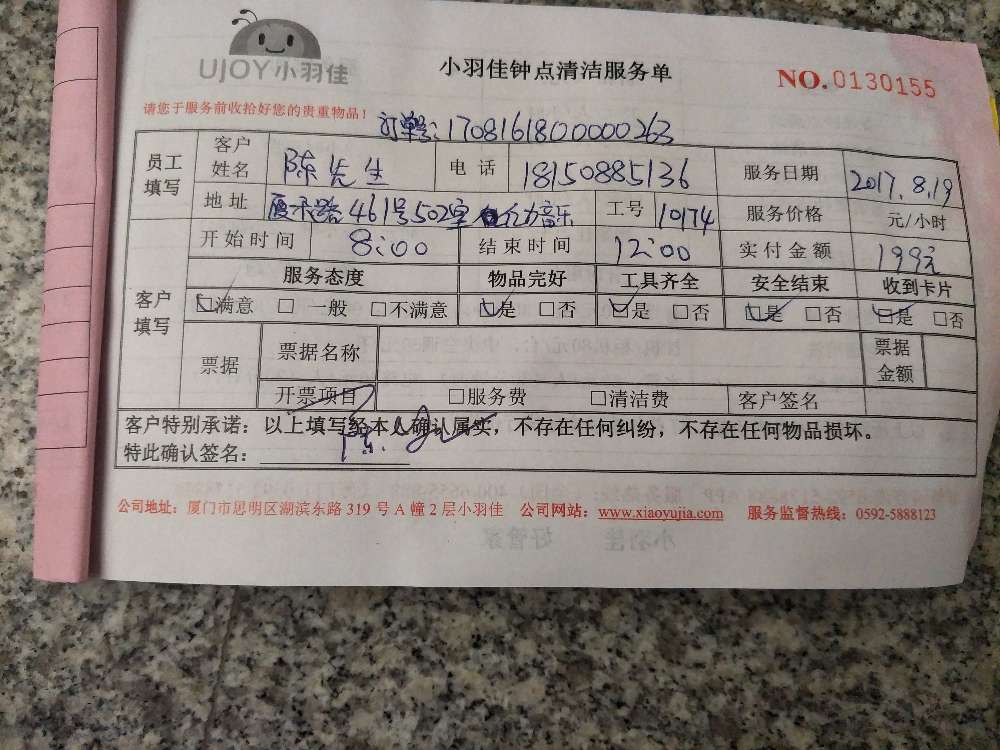 UJOY小羽佳
小羽佳钟点清洁服务单
NO.0130155
请您于服务前收拾好您的贵重物品！
订单号：1708161800000263
员工填写 客户姓名 陈先生 电话 18150885136 服务日期 2017.8.19
地址 厦禾路461号502室 音乐 工号 10174 服务价格 元/小时
开始时间 8:00 结束时间 12:00 实付金额 199元
客户填写 服务态度 物品完好 工具齐全 安全结束 收到卡片
☑满意 □一般 □不满意 ☑是 □否 ☑是 □否 ☑是 □否 ☑是 □否
票据 票据名称 票据金额
开票项目 □服务费 □清洁费 客户签名
客户特别承诺：以上填写经本人确认属实，不存在任何纠纷，不存在任何物品损坏。
特此确认签名：
公司地址：厦门市思明区湖滨东路 319 号 A 幢 2 层小羽佳 公司网站：www.xiaoyujia.com 服务监督热线：0592-5888123